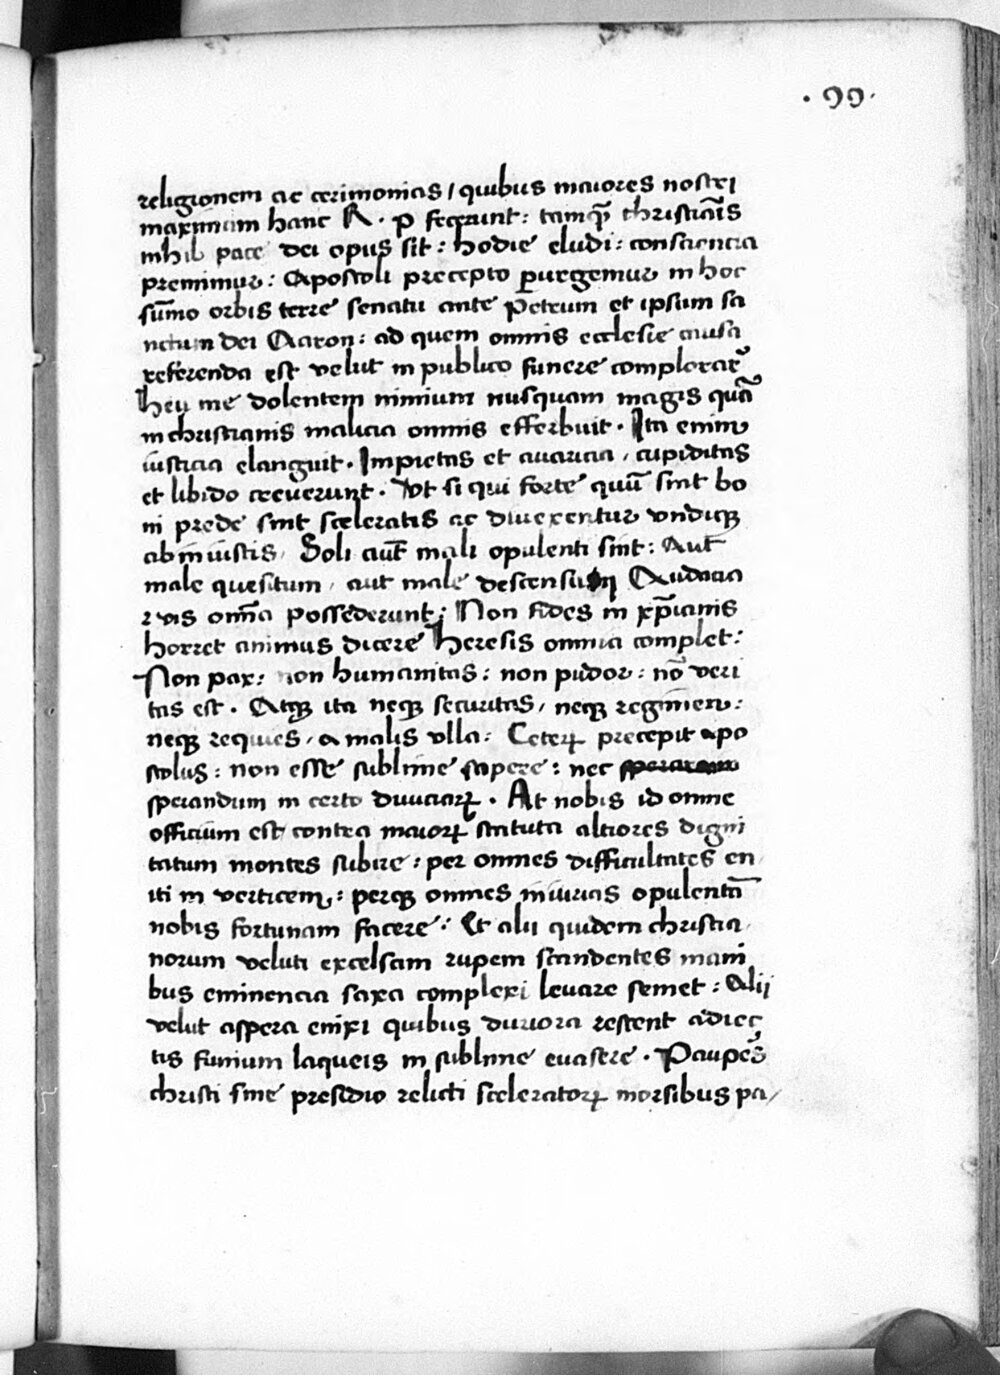 · 99 ·
religionem ac cerimonias / quibus maiores nostri
maximam hanc R · p fecerunt : tamq̃ christiãis
nihil pace dei opus sit : hodie eludi : consciencia
premimur : Apostoli precepto ꝑurgemur in hoc
sũmo orbis terre senatu ante Petrum et ipsum sa
nctum dei Aaron : ad quem omnis ecclesie causa
referenda est velut in publico funere complorat᷑
Heu me dolentem nimium nusquam magis quã
in christianis malicia omnis efferbuit · Ita enim
iusticia elanguit · Impietas et auaricia / cupiditas
et libido creuerunt · Vt si qui forte quũ sint bo
ni prede sint sceleratis ac diuexentur vndiqꝫ
ab iniustis / Soli aut̃ mali opulenti sint : Aut
male quesitum / aut male descensum Audacia
vis om̃a possederunt : Non fides in xp̃ianis
horret animus dicere Heresis omnia complet :
Non pax : non humanitas : non pudor : nõ veri
tas est · Atqꝫ ita neqꝫ securitas / neqꝫ regimen :
neqꝫ requies / a malis vlla : Ceterꝝ precepit apo
stolus : non esse sublime sapere : nec
sperandum in certo diuiciarꝝ · At nobis id omne
officium est contra maiorꝝ statuta altiores digni
tatum montes subire : per omnes difficultates en
iti in verticem : perqꝫ omnes iniurias opulentã
nobis fortunam facere : Et alii quidem christia
norum veluti excelsam rupem scandentes mani
bus eminencia saxa complexi leuare semet : Alii
velut aspera enixi quibus duriora restent adiec
tis funium laqueis in sublime euasere · Paupes̃
christi sine presidio relicti sceleratorꝝ morsibus pa /